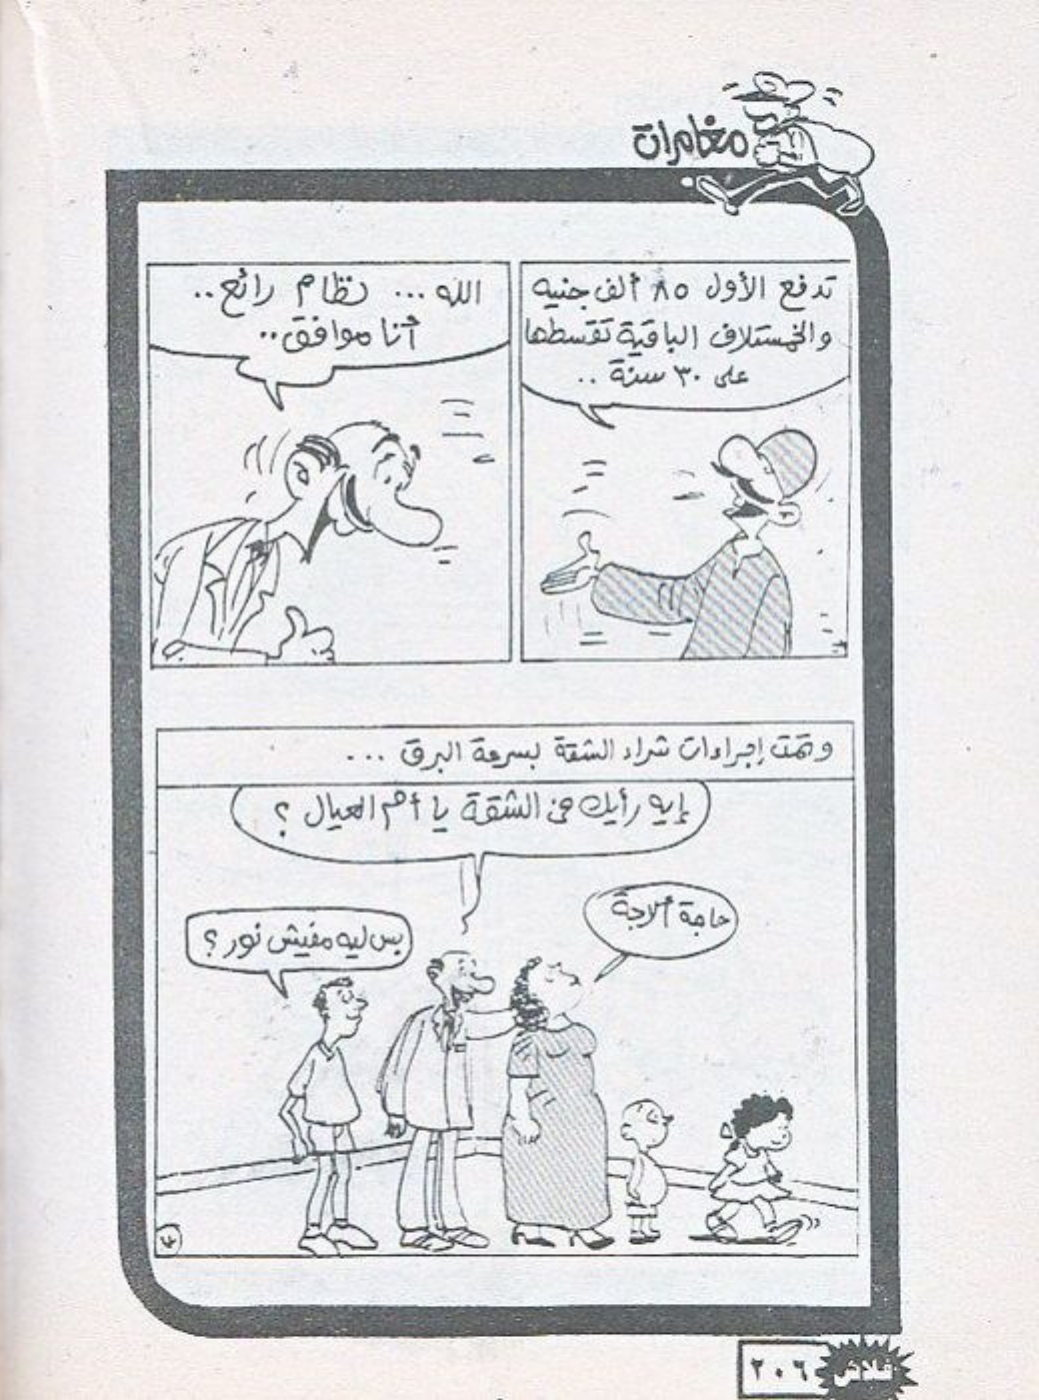 مغامرات
تدفع الأول ٨٥ ألف جنيه
والخمستلاف الباقية تقسطها
على ٣٠ سنة ..
الله ... نظام رائع ..
أنا موافق ..
وتمت إجراءات شراء الشقة بسرعة البرق ...
إيه رأيك في الشقة يا أم العيال ؟
حاجة ألاجة
بس ليه مفيش نور ؟
فلاش ٢٠٦